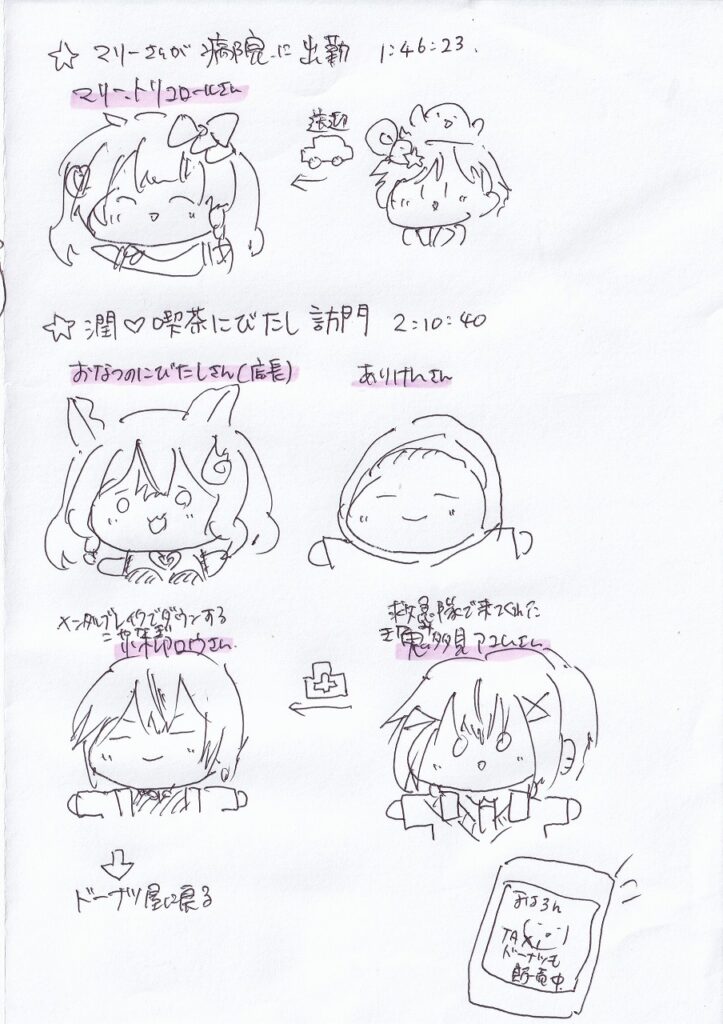 ☆ マリーさんが病院に出勤 1:46:23.
マリー・トリコロールさん
送迎
☆ 潤♡喫茶にびたし 訪問 2:10:40
おなつのにびたしさん(店長)
ありけんさん
メンタルブレイクでダウンする
ロウさん
救急隊で来てくれた
きたみ
鬼多見アユムさん
⇩
ドーナツ屋に戻る
おはろん
TAXI
ドーナツも
販売中